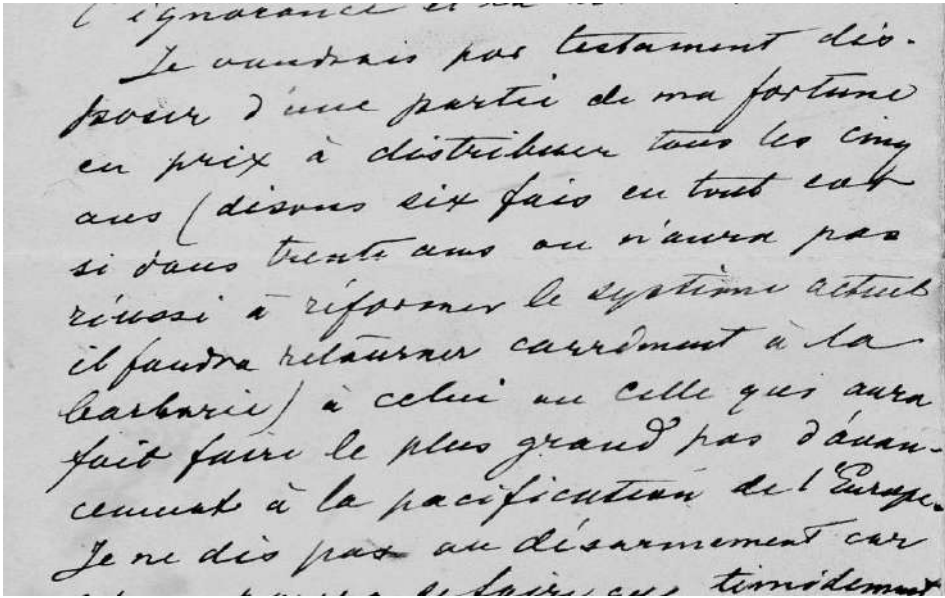 l'ignorance et la
Je voudrais par testament dis-
poser d'une partie de ma fortune
en prix à distribuer tous les cinq
ans (disons six fois en tout car
si dans trente ans on n'aura pas
réussi à réformer le système actuel
il faudra retourner carrément à la
barbarie) à celui ou celle qui aura
fait faire le plus grand pas d'avan-
cement à la pacification de l'Europe.
Je ne dis pas au désarmement car
se faire que timidement